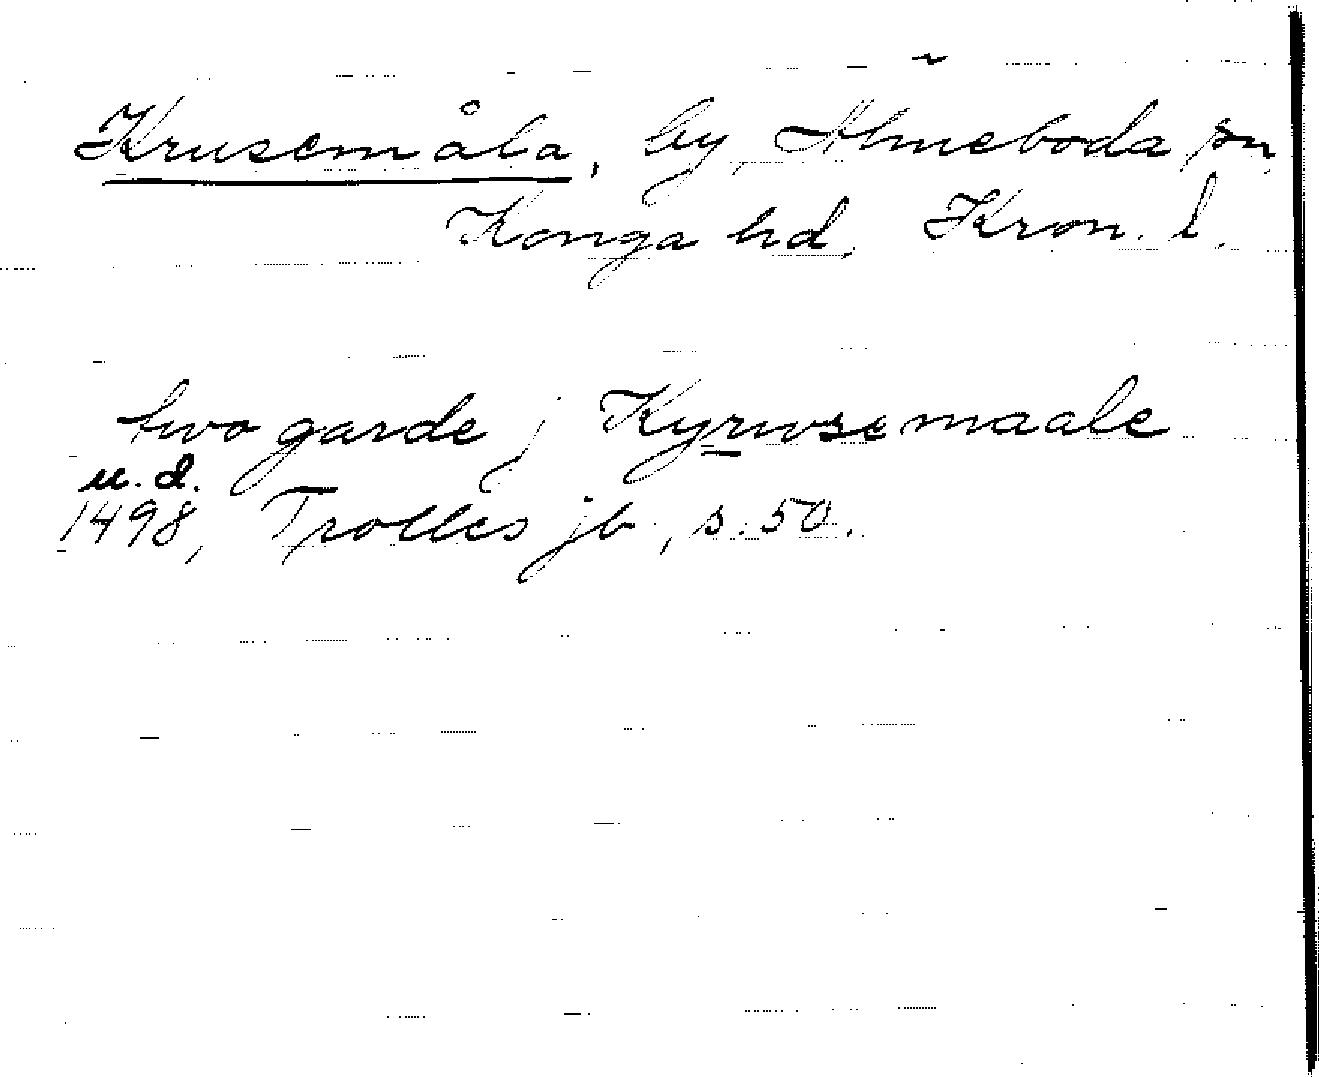 Krusemåla, by, Älmeboda sn
Konga hd, Kron. l.
two garde j Kyrwsemaale
u.d.
1498, Trolles jb, s. 50.